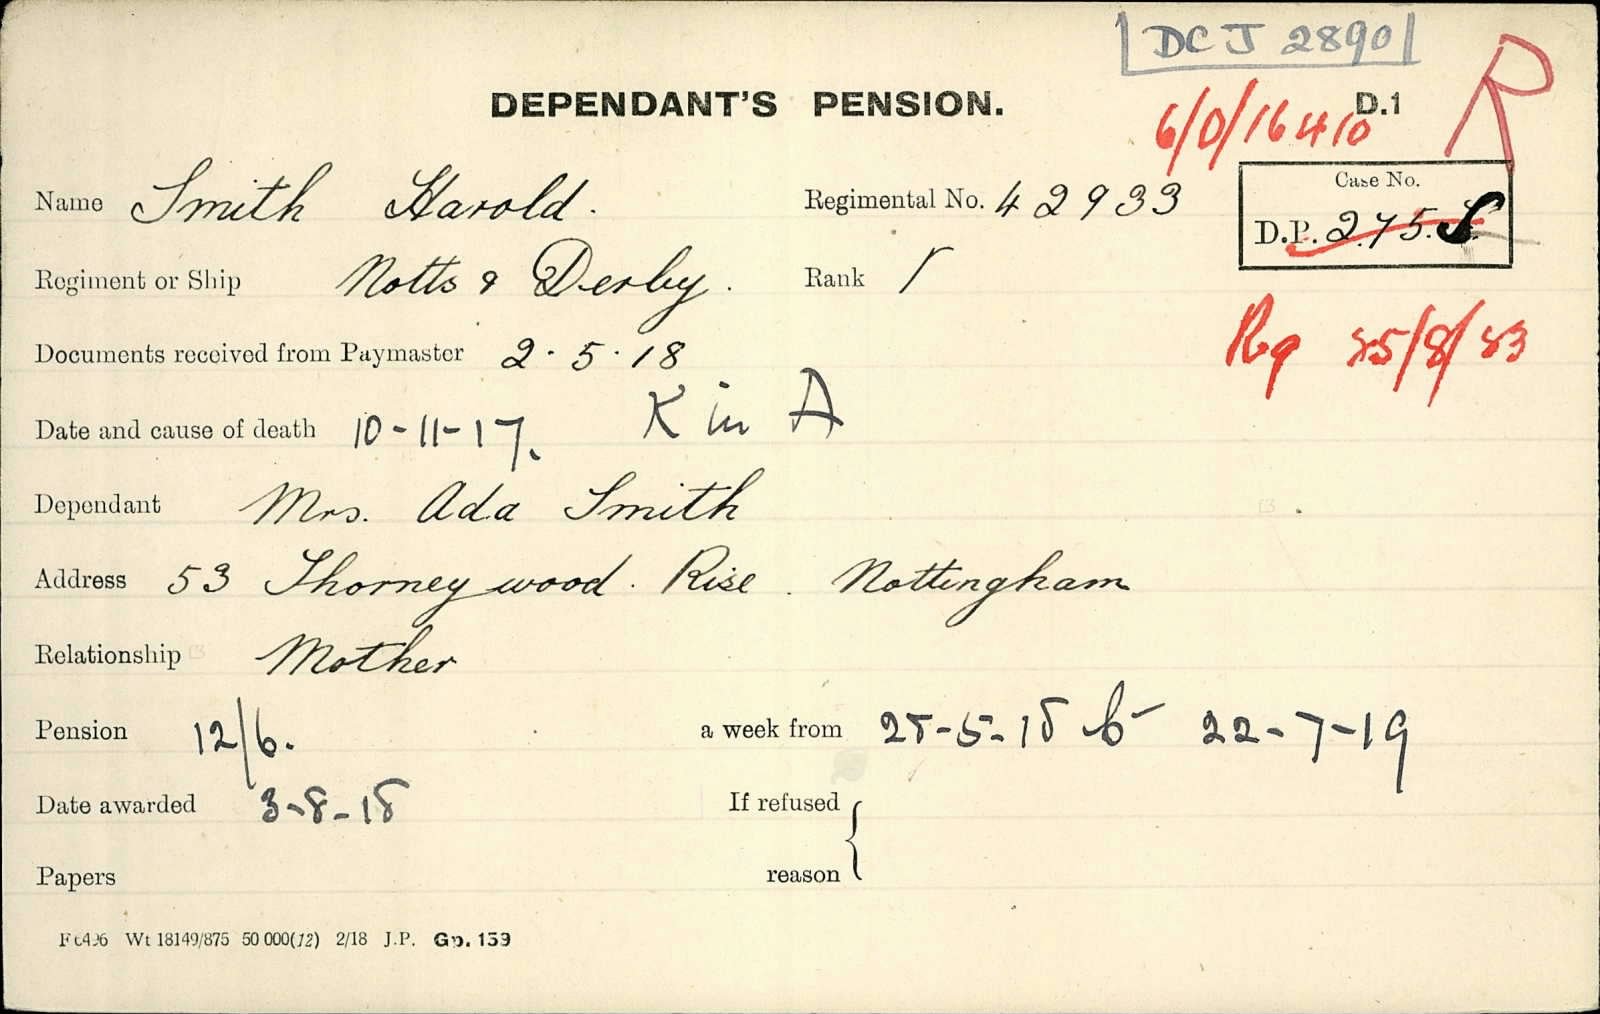 DCJ 2890
DEPENDANT'S PENSION. D.1
R
6/D/16410
Case No.
D.P. 275.S.
Name Smith Harold. Regimental No. 42933
Regiment or Ship Notts & Derby. Rank
Documents received from Paymaster 2.5.18
Date and cause of death 10-11-17. K in A
Dependant Mrs. Ada Smith
Address 53 Thorneywood. Rise. Nottingham
Relationship Mother
Pension 12/6. a week from 28-5-18 to 22-7-19
Date awarded 3-8-18 If refused
Papers reason
Wt 18149/875 50 000(12) 2/18 J.P. Gp. 159